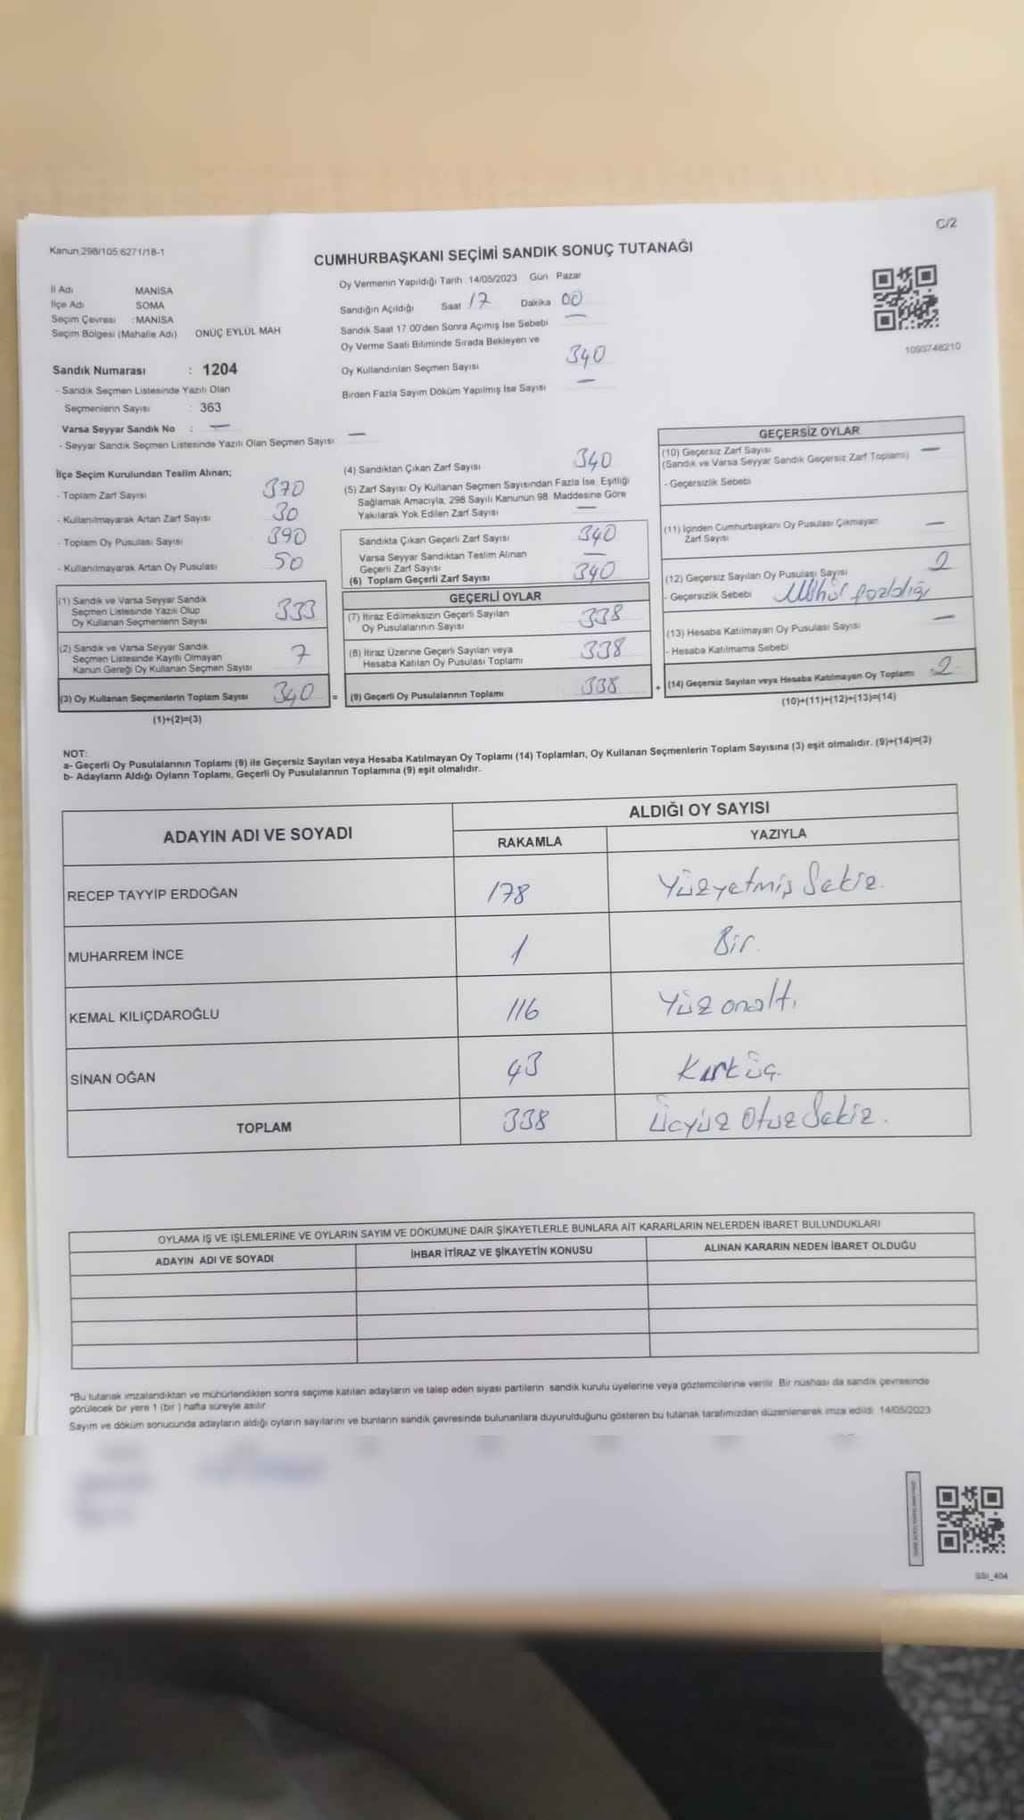 C/2
Kanun 298/105 6271/18-1
CUMHURBAŞKANI SEÇİMİ SANDIK SONUÇ TUTANAĞI
İl Adı MANİSA
İlçe Adı SOMA
Seçim Çevresi : MANİSA
Seçim Bölgesi (Mahalle Adı) ONÜÇ EYLÜL MAH
Sandık Numarası : 1204
- Sandık Seçmen Listesinde Yazılı Olan
Seçmenlerin Sayısı : 363
Varsa Seyyar Sandık No : —
- Seyyar Sandık Seçmen Listesinde Yazılı Olan Seçmen Sayısı —
Oy Vermenin Yapıldığı Tarih 14/05/2023 Gün Pazar
Sandığın Açıldığı Saat 17 Dakika 00
Sandık Saat 17 00'den Sonra Açımış İse Sebebi —
Oy Verme Saati Bitiminde Sırada Bekleyen ve
Oy Kullandırılan Seçmen Sayısı 340
Birden Fazla Sayım Döküm Yapılmış İse Sayısı —
1093748210
İlçe Seçim Kurulundan Teslim Alınan;
- Toplam Zarf Sayısı 370
- Kullanılmayarak Artan Zarf Sayısı 30
- Toplam Oy Pusulası Sayısı 390
- Kullanılmayarak Artan Oy Pusulası 50
(1) Sandık ve Varsa Seyyar Sandık
Seçmen Listesinde Yazılı Olup
Oy Kullanan Seçmenlerin Sayısı 333
(2) Sandık ve Varsa Seyyar Sandık
Seçmen Listesinde Kayıtlı Olmayan
Kanun Gereği Oy Kullanan Seçmen Sayısı 7
(3) Oy Kullanan Seçmenlerin Toplam Sayısı 340 =
(1)+(2)=(3)
(4) Sandıktan Çıkan Zarf Sayısı 340
(5) Zarf Sayısı Oy Kullanan Seçmen Sayısından Fazla İse, Eşitliği
Sağlamak Amacıyla, 298 Sayılı Kanunun 98. Maddesine Göre
Yakılarak Yok Edilen Zarf Sayısı —
Sandıkta Çıkan Geçerli Zarf Sayısı 340
Varsa Seyyar Sandıktan Teslim Alınan
Geçerli Zarf Sayısı —
(6) Toplam Geçerli Zarf Sayısı 340
GEÇERLİ OYLAR
(7) İtiraz Edilmeksizin Geçerli Sayılan
Oy Pusulalarının Sayısı 338
(8) İtiraz Üzerine Geçerli Sayılan veya
Hesaba Katılan Oy Pusulası Toplamı 338
(9) Geçerli Oy Pusulalarının Toplamı 338 +
GEÇERSİZ OYLAR
(10) Geçersiz Zarf Sayısı —
(Sandık ve Varsa Seyyar Sandık Geçersiz Zarf Toplamı)
- Geçersizlik Sebebi
(11) İçinden Cumhurbaşkanı Oy Pusulası Çıkmayan
Zarf Sayısı —
(12) Geçersiz Sayılan Oy Pusulası Sayısı 2
- Geçersizlik Sebebi Mühür fazlalığı
(13) Hesaba Katılmayan Oy Pusulası Sayısı —
- Hesaba Katılmama Sebebi
(14) Geçersiz Sayılan veya Hesaba Katılmayan Oy Toplamı 2
(10)+(11)+(12)+(13)=(14)
NOT:
a- Geçerli Oy Pusulalarının Toplamı (9) ile Geçersiz Sayılan veya Hesaba Katılmayan Oy Toplamı (14) Toplamları, Oy Kullanan Seçmenlerin Toplam Sayısına (3) eşit olmalıdır. (9)+(14)=(3)
b- Adayların Aldığı Oyların Toplamı, Geçerli Oy Pusulalarının Toplamına (9) eşit olmalıdır.
ADAYIN ADI VE SOYADI ALDIĞI OY SAYISI
RAKAMLA YAZIYLA
RECEP TAYYİP ERDOĞAN 178 Yüzyetmiş Sekiz.
MUHARREM İNCE 1 Bir.
KEMAL KILIÇDAROĞLU 116 Yüz onaltı
SİNAN OĞAN 43 Kırk üç.
TOPLAM 338 Üçyüz Otuz Sekiz.
OYLAMA İŞ VE İŞLEMLERİNE VE OYLARIN SAYIM VE DÖKÜMÜNE DAİR ŞİKAYETLERLE BUNLARA AİT KARARLARIN NELERDEN İBARET BULUNDUKLARI
ADAYIN ADI VE SOYADI İHBAR İTİRAZ VE ŞİKAYETİN KONUSU ALINAN KARARIN NEDEN İBARET OLDUĞU
*Bu tutanak imzalandıktan ve mühürlendikten sonra seçime katılan adayların ve talep eden siyasi partilerin sandık kurulu üyelerine veya gözlemcilerine verilir. Bir nüshası da sandık çevresinde
görülecek bir yere 1 (bir) hafta süreyle asılır.
Sayım ve döküm sonucunda adayların aldığı oyların sayılarını ve bunların sandık çevresinde bulunanlara duyurulduğunu gösteren bu tutanak tarafımızdan düzenlenerek imza edildi. 14/05/2023
SSI_404